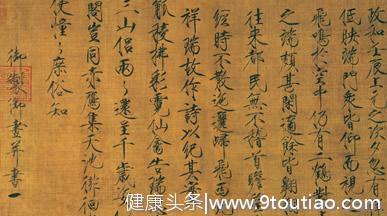 政和壬辰上元之次夕忽有
低映端門眾皆仰而視
飛鳴於空中仍有二鶴對
之端頗甚閑適餘皆翱
往來都民無不稽首瞻
經時不散迤邐歸飛西
祥瑞故作詩以紀其實
觚稜拂彩霓仙禽告瑞
三山侶兩兩還呈千歲
閣豈同赤雁集天池徘徊
使憧憧庶俗知
御製御畫并書
健康头条
www.9toutiao.com